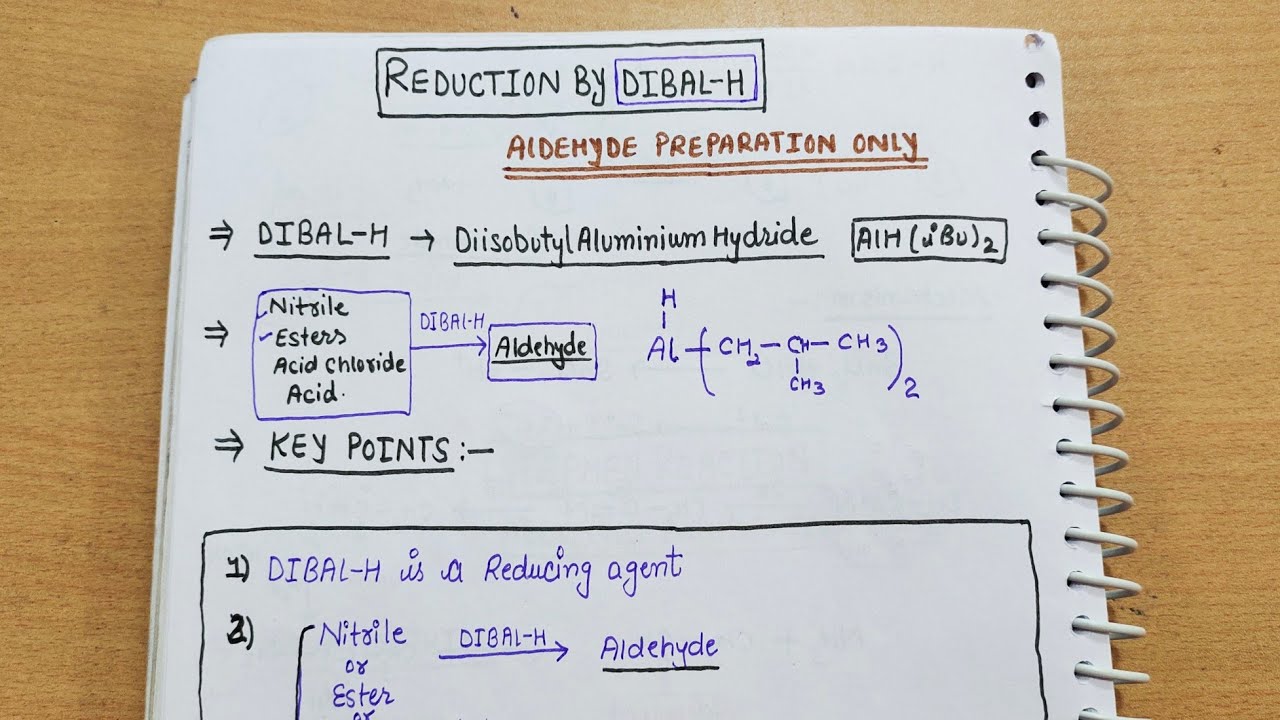 REDUCTION BY DIBAL-H
AlDEHYDE PREPARATION ONLY
⇒ DIBAL-H → Diisobutyl Aluminium Hydride AlH(iBu)2
⇒ Nitrile
Esters
Acid Chloride
Acid.
DIBAL-H
Aldehyde
H
Al ( CH2 — CH — CH3 )2
CH3
⇒ KEY POINTS :-
1) DIBAL-H is a Reducing agent
2) Nitrile DIBAL-H Aldehyde
or
Ester
or